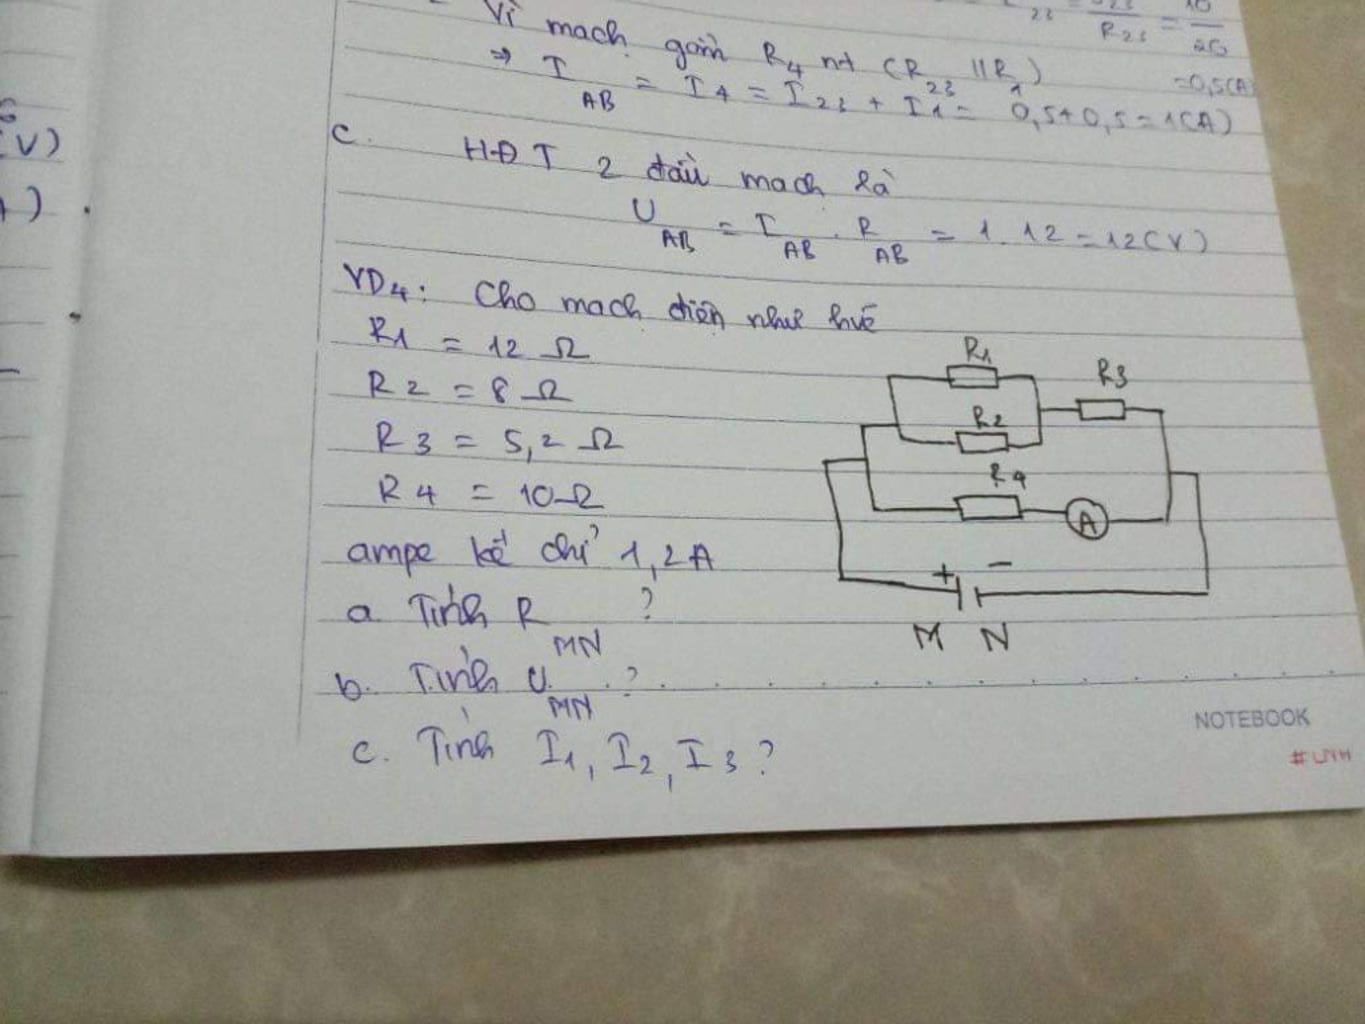 Vì mạch gồm R4 nt (R23 // R1)
=0,5(A)
=> I AB = I4 = I23 + I1 = 0,5+0,5=1(A)
c. HĐT 2 đầu mạch là
(V)
U AB = I AB . R AB = 1.12=12(V)
VD4: Cho mạch điện như hvẽ
R1 = 12 Ω
R2 = 8 Ω
R3 = 5,2 Ω
R4 = 10 Ω
ampe kế chỉ 1,2A
a. Tính R MN ?
b. Tính U MN ?
c. Tính I1, I2, I3 ?
R1
R3
R2
R4
A
+ −
M N
NOTEBOOK